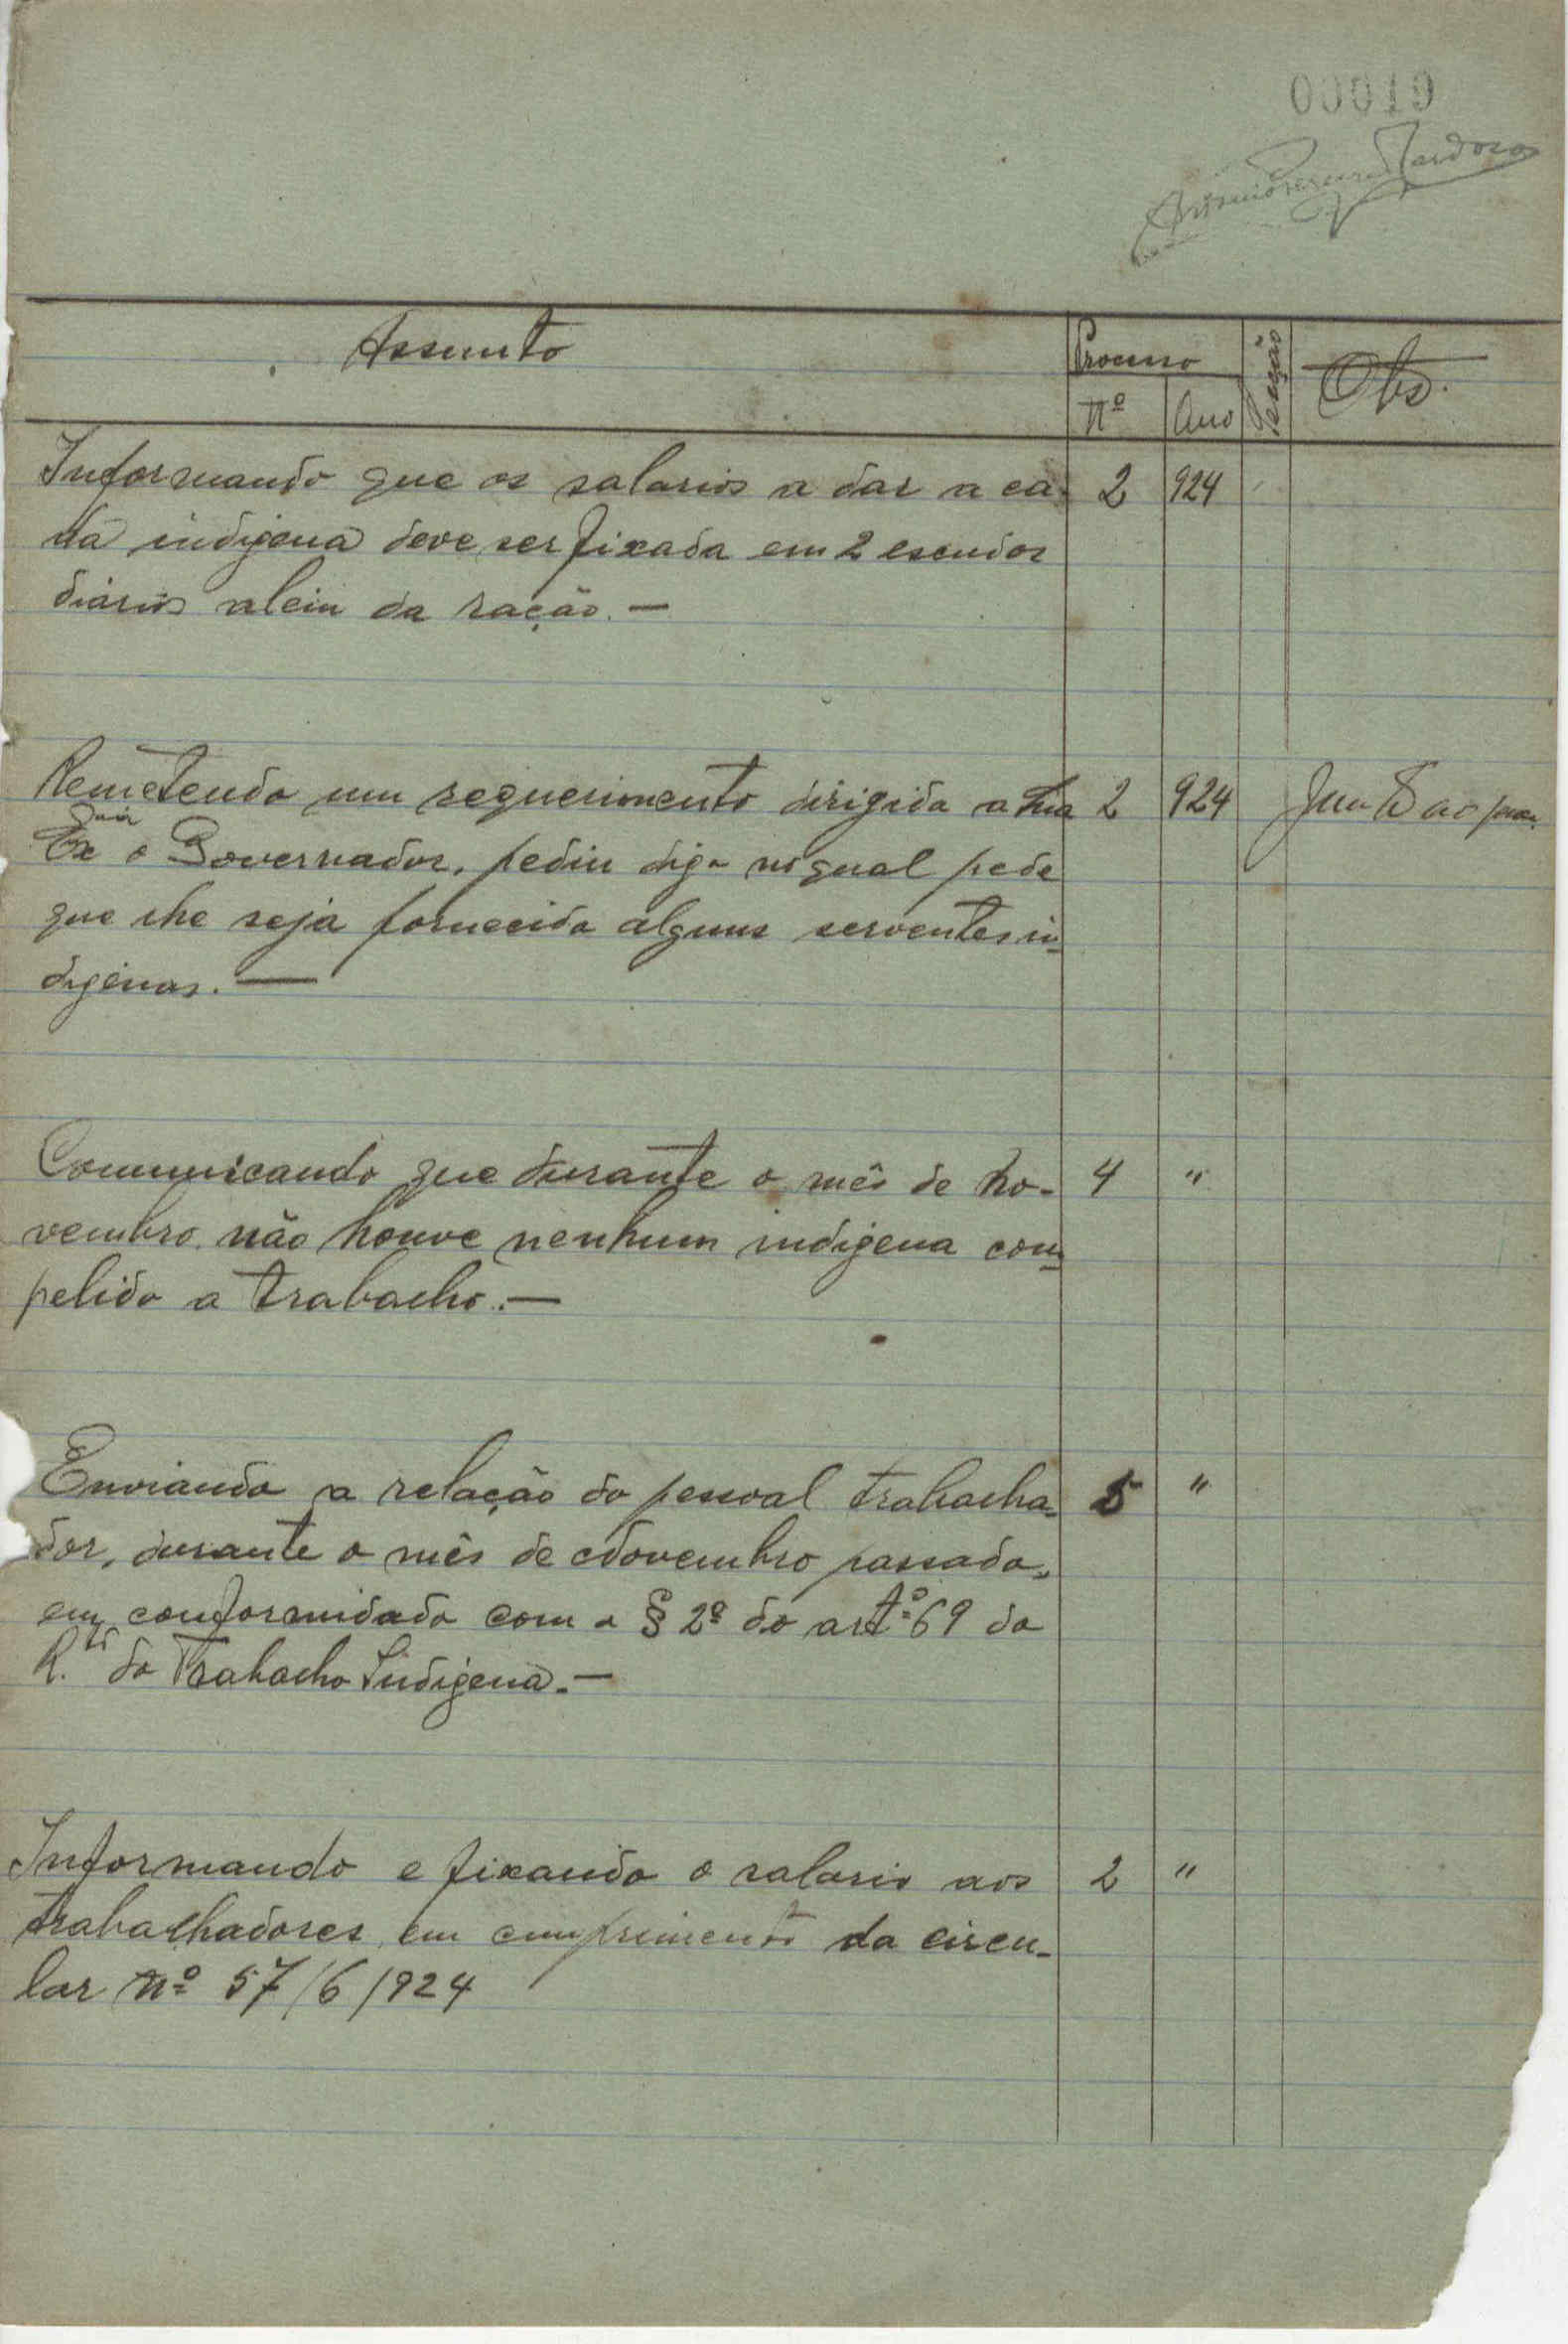 00019
Cardoso
Assunto
Processo
Nº
Ano
Secção
Obs.
Informando que os salarios a dar a ca- 2 924
da indigena deve ser fixada em 2 escudos
diários alem da ração. —
Remetendo um requerimento dirigida a Sua 2 924 Junto ao
Exª o Governador, pediu digo no qual pede
que lhe seja fornecido alguns serventes in-
digenas. —
Comunicando que durante o mês de No- 4 "
vembro não houve nenhum indigena com-
pelido a trabalho. —
Enviando a relação do pessoal trabalha- 5 "
dor, durante o mês de Novembro passado,
em conformidade com o § 2º do artº 69 do
R.to do Trabalho Indigena. —
Informando e fixando o salario aos 2 "
trabalhadores em cumprimento da circu-
lar nº 57/6/924